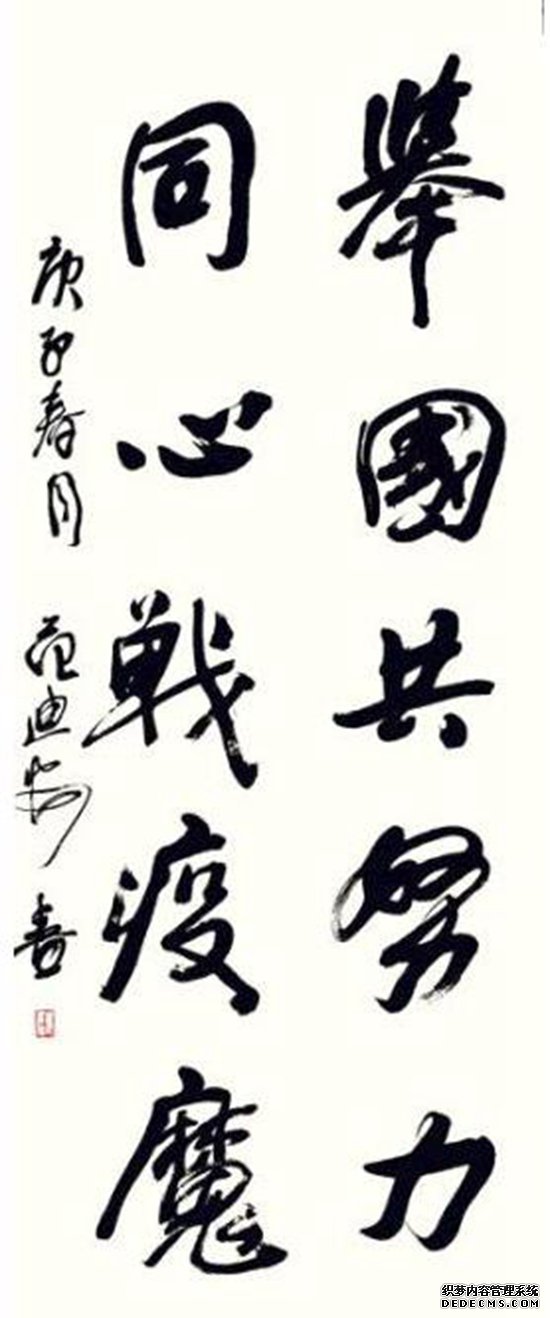 舉國共努力
同心戰疫魔
庚子春月 范迪安書
织梦内容管理系统
DEDECMS.COM